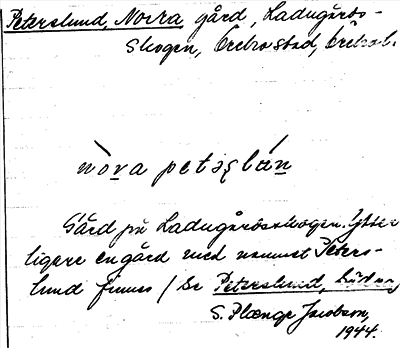 Peterslund, Norra, gård, Ladugårds-
skogen, Örebro stad, Örebro l.
nòra petəʂlún
Gård på Ladugårdsskogen. Ytter
ligare en gård med namnet Peters-
lund finnes / Se Peterslund, Södra,
S. Plænge Jacobson,
1944.